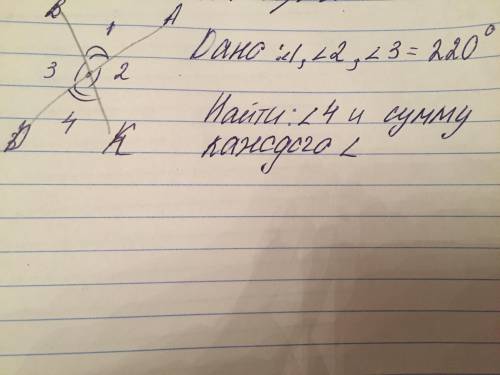 B
A
1
3
2
4
D
K
Дано: ∠1, ∠2, ∠3 = 220°
Найти: ∠4 и сумму
каждого ∠